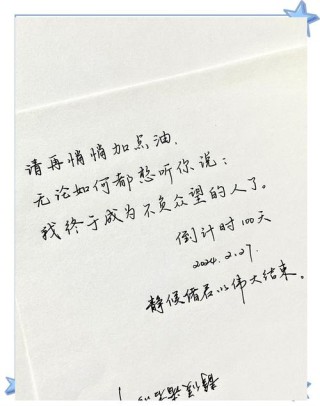 请再悄悄加点油.
无论如何都想听你说:
我终于成为不负众望的人了。
倒计时100天
2024.2.27.
静候佳音以伟大结束。